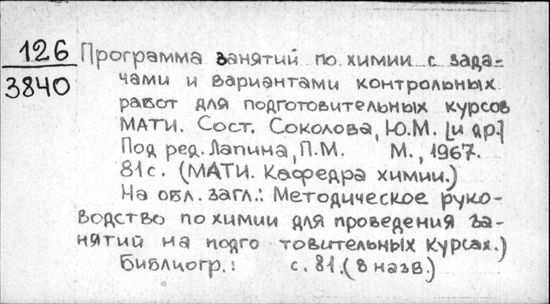 126
3840
Программа занятий по химии с зада-
чами и вариантами контрольных
работ для подготовительных курсов
МАТИ. Сост. Соколова, Ю.М. [и др.]
Под ред. Лапина, П.М. М., 1967.
81 с. (МАТИ. Кафедра химии.)
На обл. загл.: Методическое руко-
водство по химии для проведения за-
нятий на подго товительных курсах.)
Библиогр.: с. 81. (8 назв.)